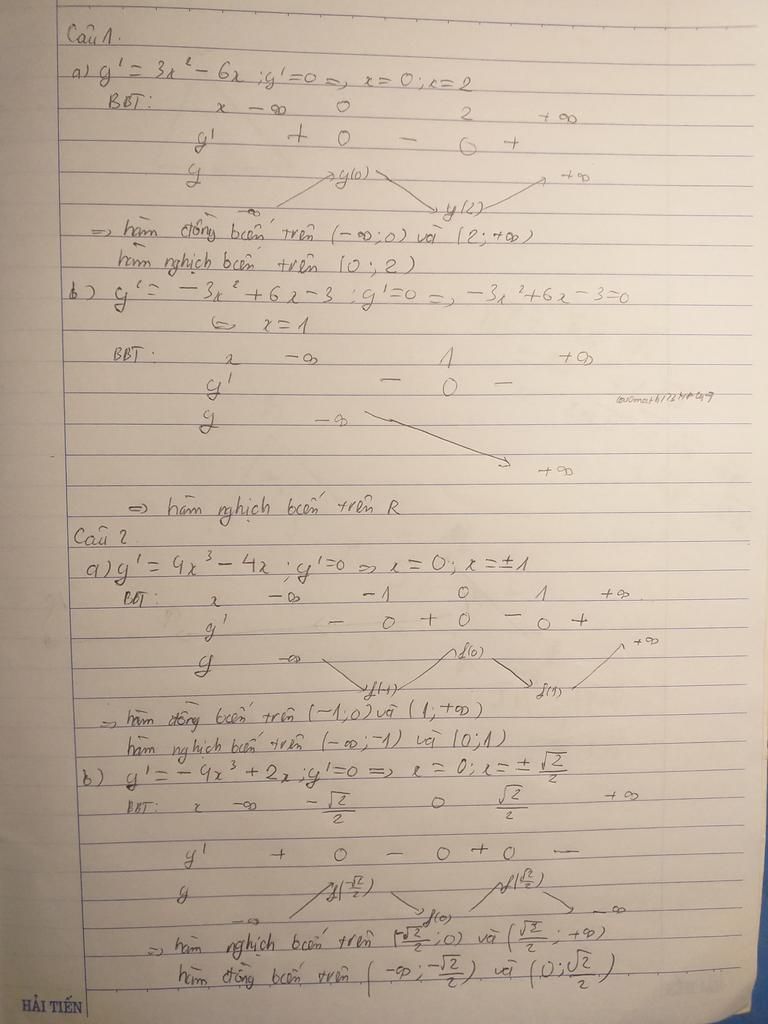 Câu 1.
a) y' = 3x² - 6x ; y' = 0 => x = 0 ; x = 2
BBT: x -∞ 0 2 +∞
y' + 0 - 0 +
y -∞ y(0) y(2) +∞
=> hàm đồng biến trên (-∞; 0) và (2; +∞)
hàm nghịch biến trên (0; 2)
b) y' = -3x² + 6x - 3 ; y' = 0 => -3x² + 6x - 3 = 0
<=> x = 1
BBT: x -∞ 1 +∞
y' - 0 -
y -∞ +∞
=> hàm nghịch biến trên R
Câu 2
a) y' = 4x³ - 4x ; y' = 0 => x = 0 ; x = ±1
BBT: x -∞ -1 0 1 +∞
y' - 0 + 0 - 0 +
y -∞ f(-1) f(0) f(1) +∞
=> hàm đồng biến trên (-1; 0) và (1; +∞)
hàm nghịch biến trên (-∞; -1) và (0; 1)
b) y' = -4x³ + 2x ; y' = 0 => x = 0 ; x = ±√2/2
BBT: x -∞ -√2/2 0 √2/2 +∞
y' + 0 - 0 + 0 -
y -∞ f(-√2/2) f(0) f(√2/2) -∞
=> hàm nghịch biến trên (-√2/2; 0) và (√2/2; +∞)
hàm đồng biến trên (-∞; -√2/2) và (0; √2/2)
HẢI TIẾN